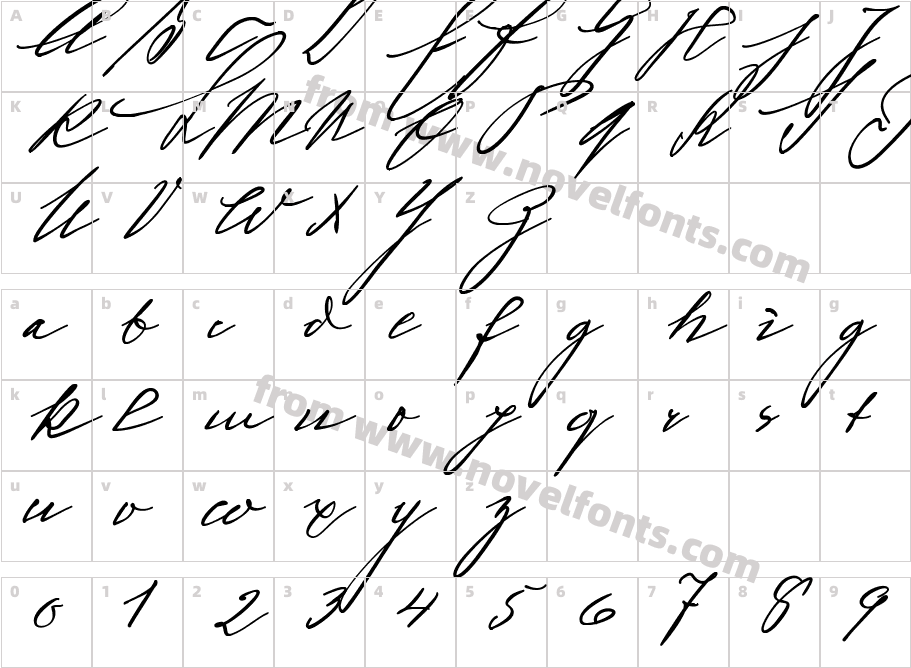 A B C D E F G H I J
A B C D E F G H I J
K L M N O P Q R S T
K L M N O P Q R S T
U V W X Y Z
U V W X Y Z
a b c d e f g h i g
a b c d e f g h i g
k l m n o p q r s t
k l m n o p q r s t
u v w x y z
u v w x y z
0 1 2 3 4 5 6 7 8 9
0 1 2 3 4 5 6 7 8 9
from www.novelfonts.com
from www.novelfonts.com